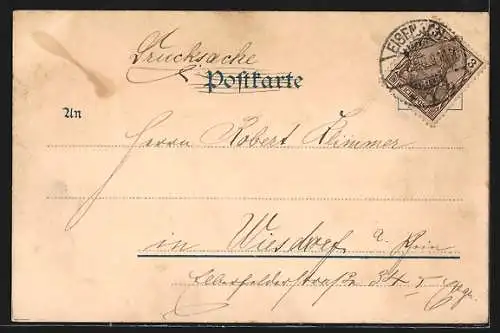 Drucksache
Postkarte
EISENACH
3
An
Herrn Robert Klimmer
in Wiesdorf a. Rhein
Elberfelderstraße 34 I